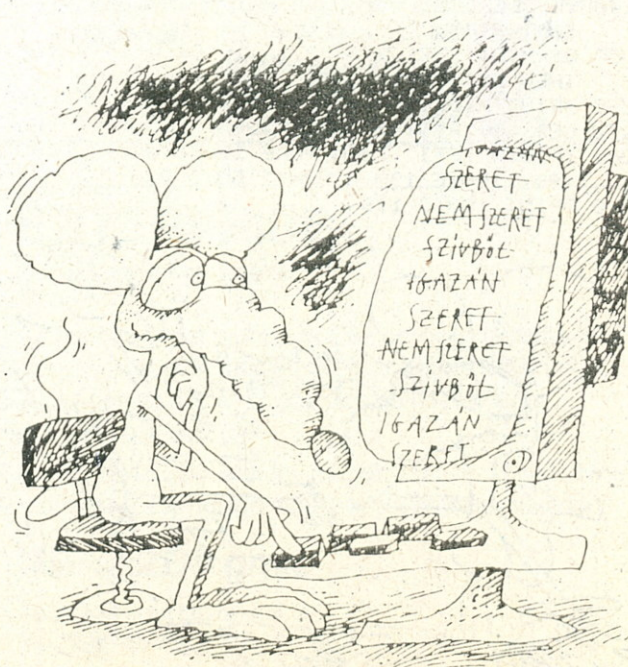 IGAZÁN
SZERET
NEMSZERET
SZÍVBŐL
IGAZÁN
SZERET
NEMSZERET
SZÍVBŐL
IGAZÁN
SZERET